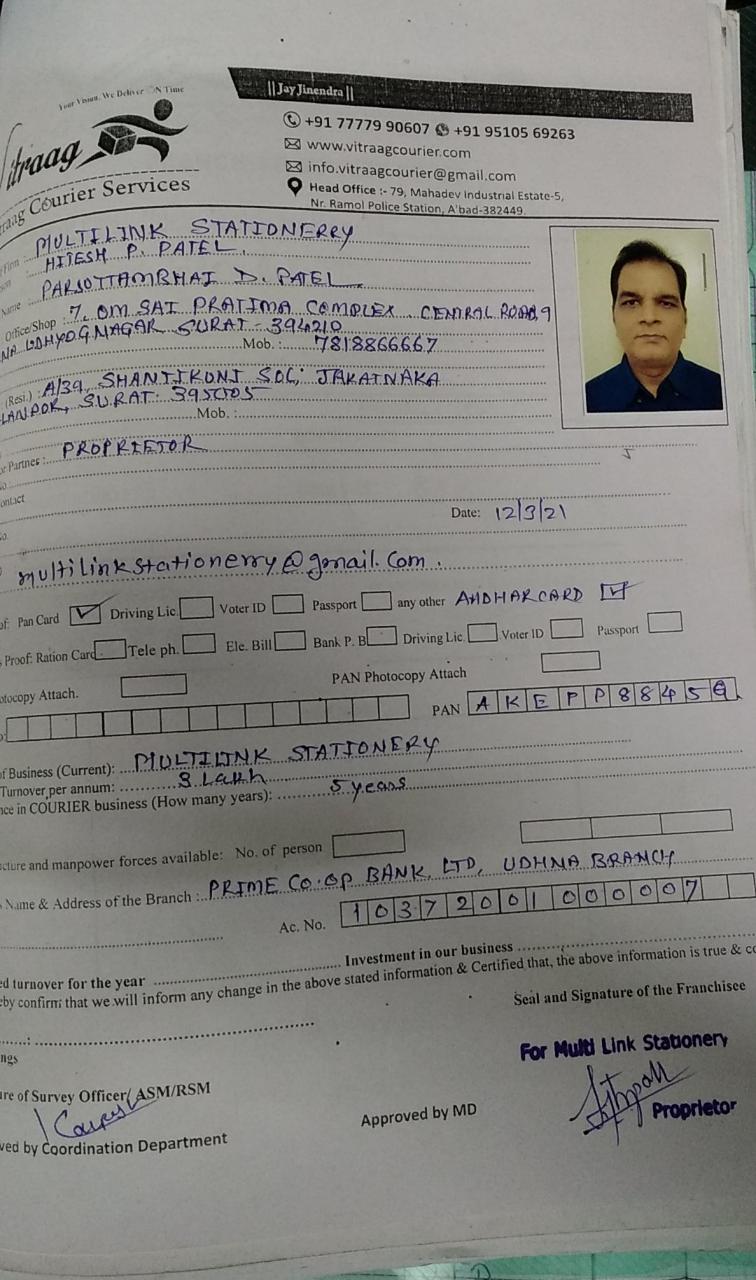 Your Vision, We Deliver ON Time
|| Jay Jinendra ||
+91 77779 90607 +91 95105 69263
www.vitraagcourier.com
info.vitraagcourier@gmail.com
Head Office :- 79, Mahadev Industrial Estate-5,
Nr. Ramol Police Station, A'bad-382449.
itraag
raag Courier Services
Firm : MULTILINK STATIONERRY
HITESH P. PATEL
Name : PARSOTTAMBHAI D. PATEL
Office/Shop : 7, OM SAI PRATIMA COMPLEX CENTRAL ROAD, 9
NA UDHYOGNAGAR SURAT - 394210
Mob. : 7818866667
(Resi.) : A/39, SHANTIKUNJ SOC, JAKATNAKA
SURAT:
Mob. :
or Partner : PROPRIETOR
ontact
Date: 12/3/21
multilinkstationerry@gmail.com.
of: Pan Card Driving Lic. Voter ID Passport any other AADHARCARD
Proof: Ration Card Tele ph. Ele. Bill Bank P. B Driving Lic. Voter ID Passport
otocopy Attach. PAN Photocopy Attach
PAN AKEPP8845
of Business (Current): MULTILINK STATIONERY
Turnover per annum: 8 Lakh
nce in COURIER business (How many years): 5 years
ucture and manpower forces available: No. of person
Name & Address of the Branch : PRIME CO.OP BANK, LTD, UDHNA BRANCH
Ac. No. 10372001000007
ed turnover for the year Investment in our business
eby confirm that we will inform any change in the above stated information & Certified that, the above information is true & co
Seal and Signature of the Franchisee
ngs
For Multi Link Stationery
ure of Survey Officer/ ASM/RSM
Approved by MD
Proprietor
ved by Coordination Department